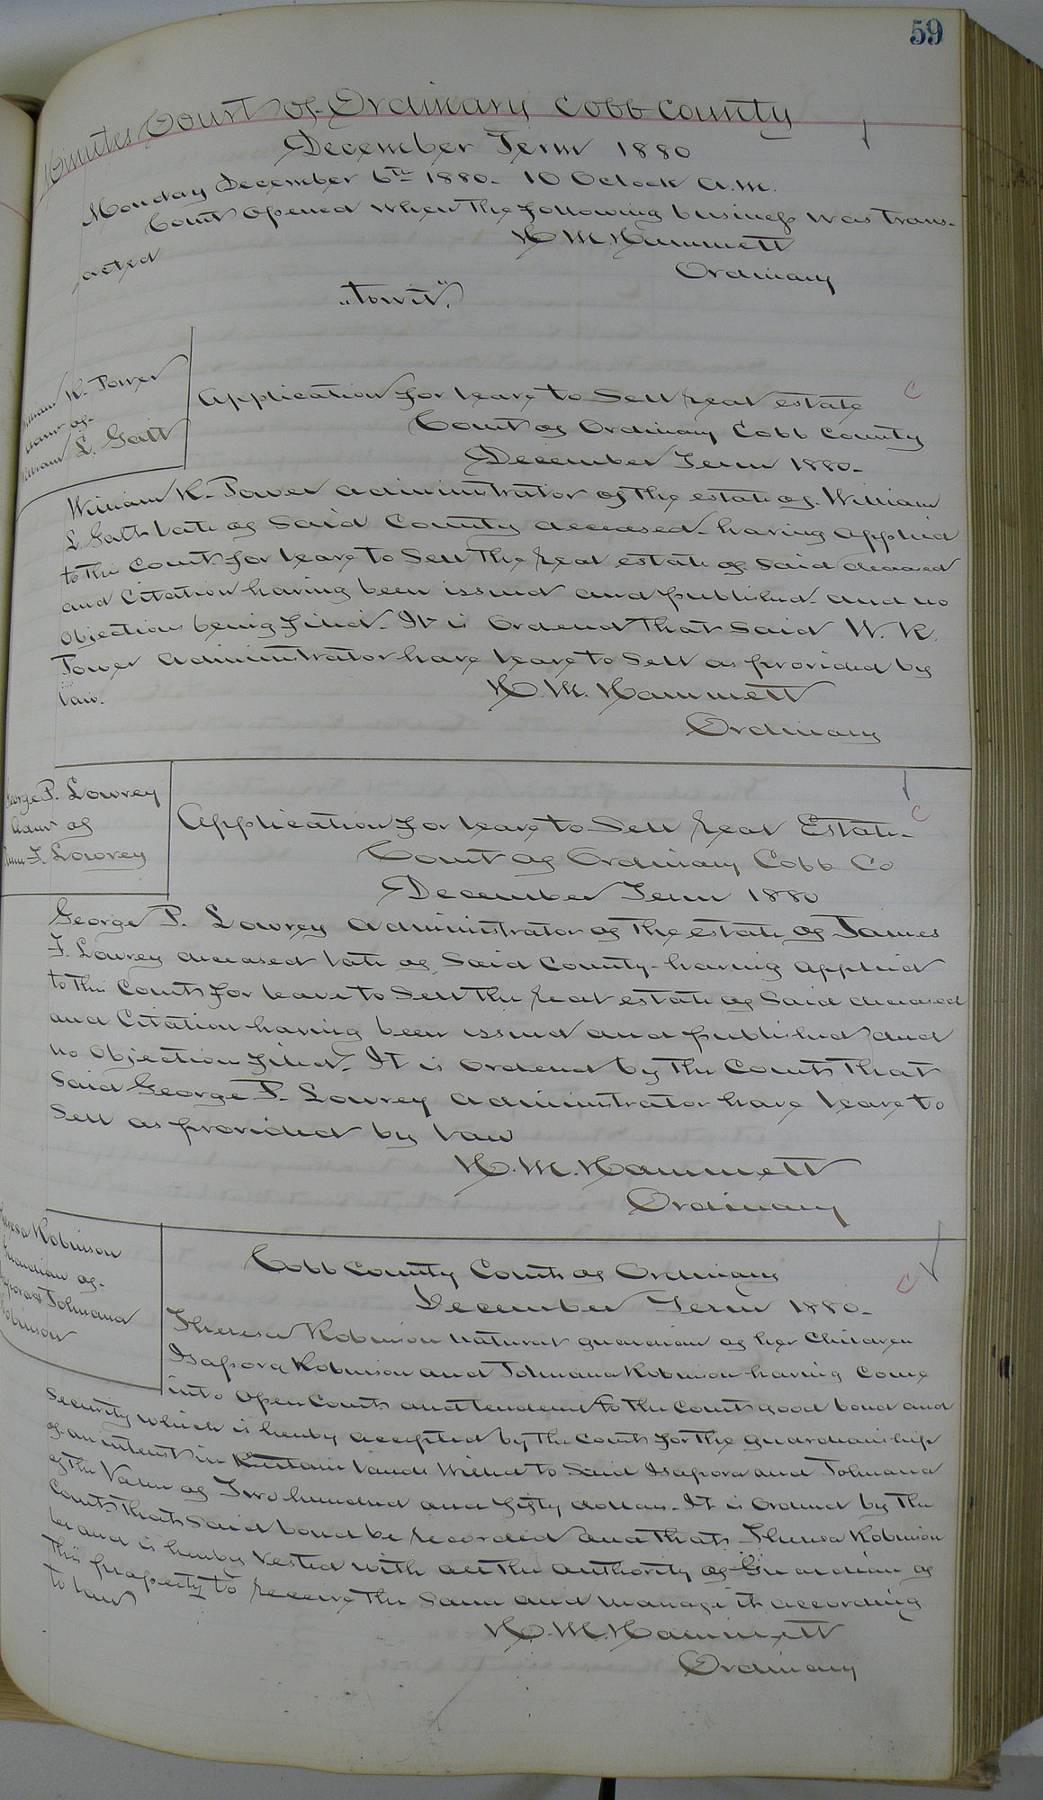 59
Minutes Court of Ordinary Cobb County
December Term 1880
Monday December 6th 1880. 10 Oclock A.M.
Court opened when the following business was trans-
acted
H M Hammett
Ordinary
"towit"
William K. Power
Admr of
William L. Gatt
Application for leave to Sell real estate
Court of Ordinary Cobb County
December Term 1880.
William K. Power administrator of the estate of William
L Gatt late of Said County deceased having applied
to the Court for leave to Sell the real estate of Said deceased
and Citation having been issued and published and no
Objection being filed. It is Ordered that Said W. K.
Power administrator have leave to Sell as provided by
law.
H. M. Hammett
Ordinary
George P. Lowrey
Admr of
James F. Lowrey
Application for leave to Sell real Estate
Court of Ordinary Cobb Co
December Term 1880
George P. Lowrey administrator of the estate of James
F. Lowrey deceased late of Said County having applied
to the Court for leave to Sell the real estate of Said deceased
and Citation having been issued and published and
no Objection filed. It is ordered by the Court that
Said George P. Lowrey administrator have leave to
Sell as provided by law
H. M. Hammett
Ordinary
Theresa Robinson
Guardian of
Isapora & Tolmana
Robinson
Cobb County Court of Ordinary
December Term 1880.
Theresa Robinson natural guardian of her Children
Isapora Robinson and Tolmana Robinson having Come
into Open Court and tendered to the Court good bond and
Security which is hereby accepted by the Court for the guardianship
of an interest in Certain lands Willed to Said Isapora and Tolmana
of the Value of Two hundred and fifty dollars. It is Ordered by the
Court that Said bond be recorded and that Theresa Robinson
be and is hereby Vested with all the authority of Guardian of
this property to receive the Same and manage it according
to law
H. M. Hammett
Ordinary